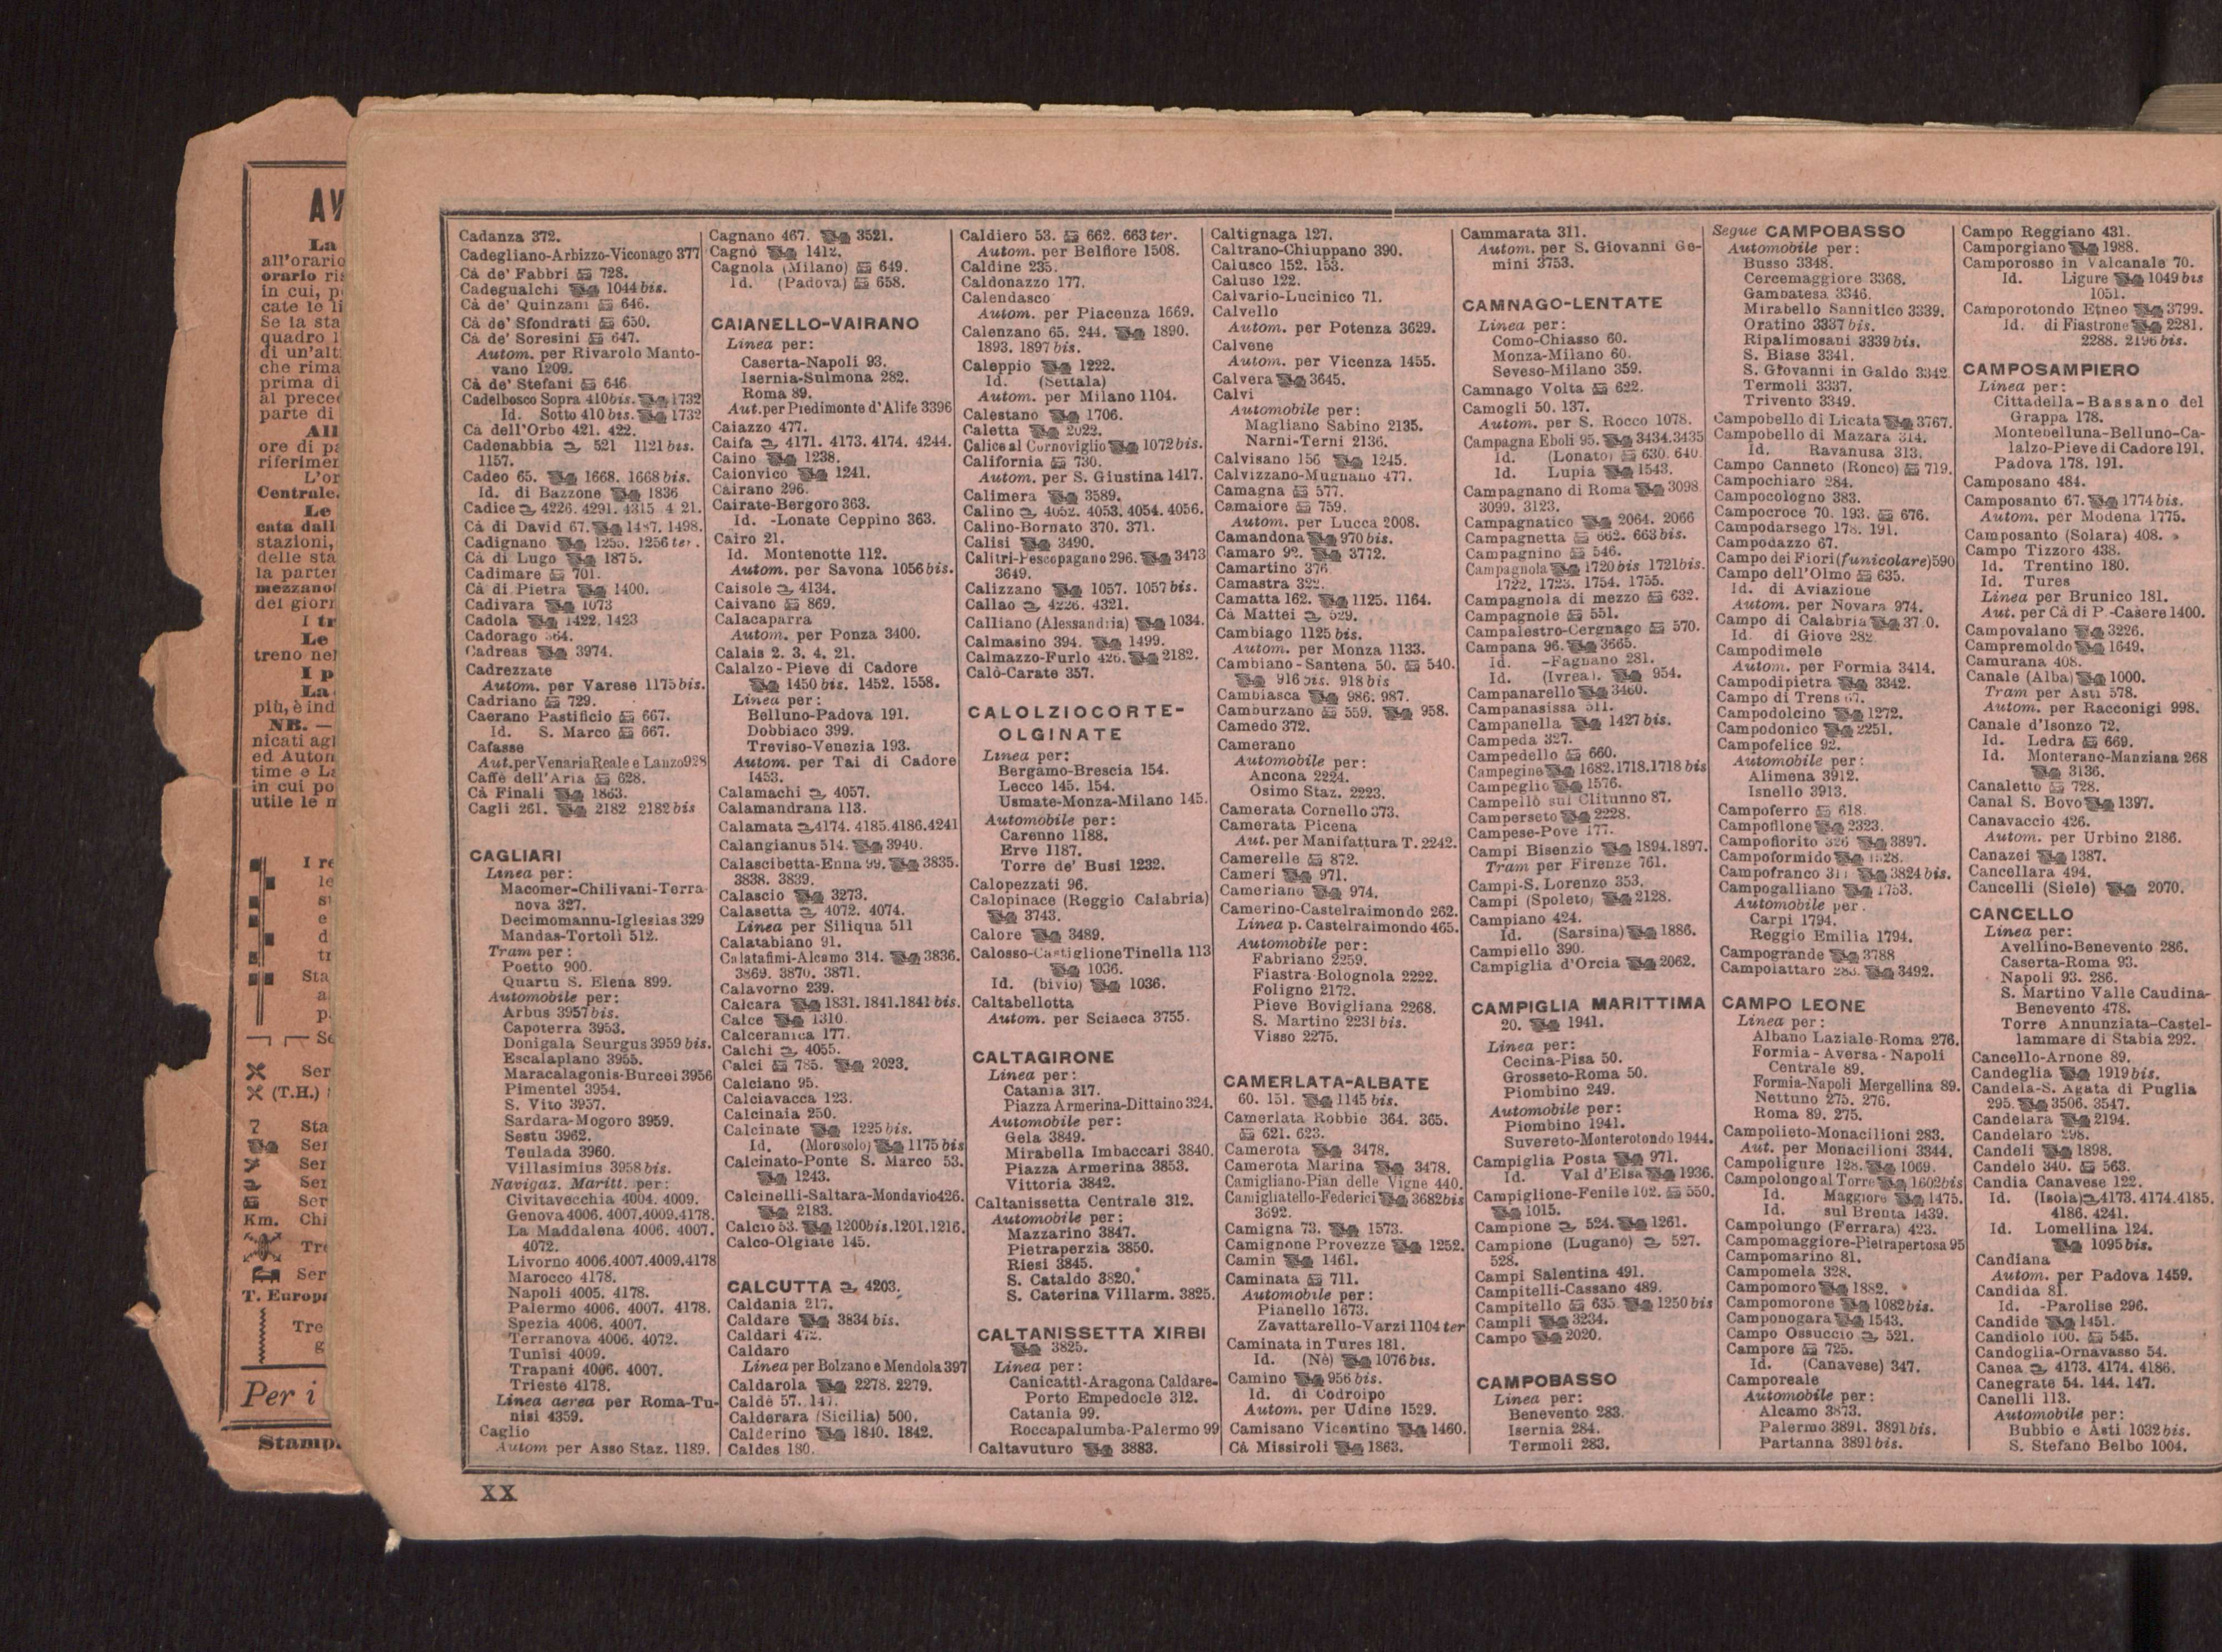 AV
La
all'orario
orario ris
in cui, p
cate le li
Se la sta
quadro 1
di un'alt
che rima
prima di
al preced
parte di
All
ore di pa
riferimen
L'or
Centrale.
Le
cata dall
stazioni,
delle sta
la parten
mezzanot
dei giorn
I tr
Le
treno nel
I p
La
più, è ind
NB. —
nicati agl
ed Auton
time e La
in cui po
utile le n
I re
le
s
e
d
tr
Sta
a
p.
Se
Ser
(T.H.)
7 Sta
Ser
Ser
Ser
Ser
Km. Chi
Tre
Ser
T. Europ
Tre
g
Per i
Stamp.
Cadanza 372.
Cadegliano-Arbizzo-Viconago 377
Cà de' Fabbri 728.
Cadegualchi 1044 bis.
Cà de' Quinzani 646.
Cà de' Sfondrati 650.
Cà de' Soresini 647.
Autom. per Rivarolo Manto-
vano 1209.
Cà de' Stefani 646
Cadelbosco Sopra 410 bis. 1732
Id. Sotto 410 bis. 1732
Cà dell'Orbo 421. 422.
Cadenabbia 521 1121 bis.
1157.
Cadeo 65. 1668. 1668 bis.
Id. di Bazzone 1836
Cadice 4226. 4291. 4315 4 21.
Cà di David 67. 1487. 1498.
Cadignano 1255. 1256 ter.
Cà di Lugo 1875.
Cadimare 701.
Cà di Pietra 1400.
Cadivara 1073
Cadola 1422. 1423
Cadorago 364.
Cadreas 3974.
Cadrezzate
Autom. per Varese 1175 bis.
Cadriano 729.
Caerano Pastificio 667.
Id. S. Marco 667.
Cafasse
Aut. per Venaria Reale e Lanzo 928
Caffè dell'Aria 628.
Cà Finali 1863.
Cagli 261. 2182 2182 bis
CAGLIARI
Linea per:
Macomer-Chilivani-Terra-
nova 327.
Decimomannu-Iglesias 329
Mandas-Tortolì 512.
Tram per:
Poetto 900.
Quartu S. Elena 899.
Automobile per:
Arbus 3957 bis.
Capoterra 3953.
Donigala Seurgus 3959 bis.
Escalaplano 3955.
Maracalagonis-Burcei 3956
Pimentel 3954.
S. Vito 3957.
Sardara-Mogoro 3959.
Sestu 3962.
Teulada 3960.
Villasimius 3958 bis.
Navigaz. Maritt. per:
Civitavecchia 4004. 4009.
Genova 4006. 4007. 4009. 4178.
La Maddalena 4006. 4007.
4072.
Livorno 4006. 4007. 4009. 4178
Marocco 4178.
Napoli 4005. 4178.
Palermo 4006. 4007. 4178.
Spezia 4006. 4007.
Terranova 4006. 4072.
Tunisi 4009.
Trapani 4006. 4007.
Trieste 4178.
Linea aerea per Roma-Tu-
nisi 4359.
Caglio
Autom per Asso Staz. 1189.
Cagnano 467. 3521.
Cagnò 1412.
Cagnola (Milano) 649.
Id. (Padova) 658.
CAIANELLO-VAIRANO
Linea per:
Caserta-Napoli 93.
Isernia-Sulmona 282.
Roma 89.
Aut. per Piedimonte d'Alife 3396
Caiazzo 477.
Caifa 4171. 4173. 4174. 4244.
Caino 1238.
Caionvico 1241.
Cairano 296.
Cairate-Bergoro 363.
Id. -Lonate Ceppino 363.
Cairo 21.
Id. Montenotte 112.
Autom. per Savona 1056 bis.
Caisole 4134.
Caivano 869.
Calacaparra
Autom. per Ponza 3400.
Calais 2. 3. 4. 21.
Calalzo - Pieve di Cadore
1450 bis. 1452. 1558.
Linea per:
Belluno-Padova 191.
Dobbiaco 399.
Treviso-Venezia 193.
Autom. per Tai di Cadore
1453.
Calamachi 4057.
Calamandrana 113.
Calamata 4174. 4185. 4186. 4241
Calangianus 514. 3940.
Calascibetta-Enna 99. 3835.
3838. 3839.
Calascio 3273.
Calasetta 4072. 4074.
Linea per Siliqua 511
Calatabiano 91.
Calatafimi-Alcamo 314. 3836.
3869. 3870. 3871.
Calavorno 239.
Calcara 1831. 1841. 1841 bis.
Calce 1310.
Calceranica 177.
Calchi 4055.
Calci 785. 2023.
Calciano 95.
Calciavacca 123.
Calcinaia 250.
Calcinate 1225 bis.
Id. (Morosolo) 1175 bis
Calcinato-Ponte S. Marco 53.
1243.
Calcinelli-Saltara-Mondavio 426.
2183.
Calcio 53. 1200 bis. 1201. 1216.
Calco-Olgiate 145.
CALCUTTA 4203.
Caldania 217.
Caldare 3834 bis.
Caldari 472.
Caldaro
Linea per Bolzano e Mendola 397
Caldarola 2278. 2279.
Caldè 57. 147.
Calderara (Sicilia) 500.
Calderino 1840. 1842.
Caldes 180.
Caldiero 53. 662. 663 ter.
Autom. per Belfiore 1508.
Caldine 235.
Caldonazzo 177.
Calendasco
Autom. per Piacenza 1669.
Calenzano 65. 244. 1890.
1893. 1897 bis.
Caleppio 1222.
Id. (Settala)
Autom. per Milano 1104.
Calestano 1706.
Caletta 2022.
Calice al Cornoviglio 1072 bis.
California 730.
Autom. per S. Giustina 1417.
Calimera 3589.
Calino 4052. 4053. 4054. 4056.
Calino-Bornato 370. 371.
Calisi 3490.
Calitri-Pescopagano 296. 3473
3649.
Calizzano 1057. 1057 bis.
Callao 4226. 4321.
Calliano (Alessandria) 1034.
Calmasino 394. 1499.
Calmazzo-Furlo 426. 2182.
Calò-Carate 357.
CALOLZIOCORTE-
OLGINATE
Linea per:
Bergamo-Brescia 154.
Lecco 145. 154.
Usmate-Monza-Milano 145.
Automobile per:
Carenno 1188.
Erve 1187.
Torre de' Busi 1232.
Calopezzati 96.
Calopinace (Reggio Calabria)
3743.
Calore 3489.
Calosso-Castiglione Tinella 113
1036.
Id. (bivio) 1036.
Caltabellotta
Autom. per Sciacca 3755.
CALTAGIRONE
Linea per:
Catania 317.
Piazza Armerina-Dittaino 324.
Automobile per:
Gela 3849.
Mirabella Imbaccari 3840.
Piazza Armerina 3853.
Vittoria 3842.
Caltanissetta Centrale 312.
Automobile per:
Mazzarino 3847.
Pietraperzia 3850.
Riesi 3845.
S. Cataldo 3820.
S. Caterina Villarm. 3825.
CALTANISSETTA XIRBI
3825.
Linea per:
Canicattì-Aragona Caldare-
Porto Empedocle 312.
Catania 99.
Roccapalumba-Palermo 99
Caltavuturo 3883.
Caltignaga 127.
Caltrano-Chiuppano 390.
Calusco 152. 153.
Caluso 122.
Calvario-Lucinico 71.
Calvello
Autom. per Potenza 3629.
Calvene
Autom. per Vicenza 1455.
Calvera 3645.
Calvi
Automobile per:
Magliano Sabino 2135.
Narni-Terni 2136.
Calvisano 156 1245.
Calvizzano-Mugnano 477.
Camagna 577.
Camaiore 759.
Autom. per Lucca 2008.
Camandona 970 bis.
Camaro 92. 3772.
Camartino 376
Camastra 322.
Camatta 162. 1125. 1164.
Cà Mattei 529.
Cambiago 1125 bis.
Autom. per Monza 1133.
Cambiano - Santena 50. 540.
916 bis. 918 bis
Cambiasca 986. 987.
Camburzano 559. 958.
Camedo 372.
Camerano
Automobile per:
Ancona 2224.
Osimo Staz. 2223.
Camerata Cornello 373.
Camerata Picena
Aut. per Manifattura T. 2242.
Camerelle 872.
Cameri 971.
Cameriano 974.
Camerino-Castelraimondo 262.
Linea p. Castelraimondo 465.
Automobile per:
Fabriano 2259.
Fiastra-Bolognola 2222.
Foligno 2172.
Pieve Bovigliana 2268.
S. Martino 2231 bis.
Visso 2275.
CAMERLATA-ALBATE
60. 151. 1145 bis.
Camerlata Robbio 364. 365.
621. 623.
Camerota 3478.
Camerota Marina 3478.
Camigliano-Pian delle Vigne 440.
Camigliatello-Federici 3682 bis
3692.
Camigna 73. 1573.
Camignone Provezze 1252.
Camin 1461.
Caminata 711.
Automobile per:
Pianello 1673.
Zavattarello-Varzi 1104 ter
Caminata in Tures 181.
Id. (Nè) 1076 bis.
Camino 956 bis.
Id. di Codroipo
Autom. per Udine 1529.
Camisano Vicentino 1460.
Cà Missiroli 1863.
Cammarata 311.
Autom. per S. Giovanni Ge-
mini 3753.
CAMNAGO-LENTATE
Linea per:
Como-Chiasso 60.
Monza-Milano 60.
Seveso-Milano 359.
Camnago Volta 622.
Camogli 50. 137.
Autom. per S. Rocco 1078.
Campagna Eboli 95. 3434. 3435
Id. (Lonato) 630. 640.
Id. Lupia 1543.
Campagnano di Roma 3098
3099. 3123.
Campagnatico 2064. 2066
Campagnetta 662. 663 bis.
Campagnino 546.
Campagnola 1720 bis 1721 bis.
1722. 1723. 1754. 1755.
Campagnola di mezzo 632.
Campagnole 551.
Campalestro-Cergnago 570.
Campana 96. 3665.
Id. -Fagnano 281.
Id. (Ivrea). 954.
Campanarello 3460.
Campanasissa 511.
Campanella 1427 bis.
Campeda 327.
Campedello 660.
Campegine 1682. 1718. 1718 bis
Campeglio 1576.
Campello sul Clitunno 87.
Camperseto 2228.
Campese-Pove 177.
Campi Bisenzio 1894. 1897.
Tram per Firenze 761.
Campi-S. Lorenzo 353.
Campi (Spoleto) 2128.
Campiano 424.
Id. (Sarsina) 1886.
Campiello 390.
Campiglia d'Orcia 2062.
CAMPIGLIA MARITTIMA
20. 1941.
Linea per:
Cecina-Pisa 50.
Grosseto-Roma 50.
Piombino 249.
Automobile per:
Piombino 1941.
Suvereto-Monterotondo 1944.
Campiglia Posta 971.
Id. Val d'Elsa 1936.
Campiglione-Fenile 102. 550.
1015.
Campione 524. 1261.
Campione (Lugano) 527.
528.
Campi Salentina 491.
Campitelli-Cassano 489.
Campitello 635 1250 bis
Campli 3234.
Campo 2020.
CAMPOBASSO
Linea per:
Benevento 283.
Isernia 284.
Termoli 283.
Segue CAMPOBASSO
Automobile per:
Busso 3348.
Cercemaggiore 3368.
Gambatesa 3346.
Mirabello Sannitico 3339.
Oratino 3337 bis.
Ripalimosani 3339 bis.
S. Biase 3341.
S. Giovanni in Galdo 3342
Termoli 3337.
Trivento 3349.
Campobello di Licata 3767.
Campobello di Mazara 314.
Id. Ravanusa 313.
Campo Canneto (Ronco) 719.
Campochiaro 284.
Campocologno 383.
Campocroce 70. 193. 676.
Campodarsego 178. 191.
Campodazzo 67.
Campo dei Fiori (funicolare) 590
Campo dell'Olmo 635.
Id. di Aviazione
Autom. per Novara 974.
Campo di Calabria 37 0.
Id. di Giove 282.
Campodimele
Autom. per Formia 3414.
Campodipietra 3342.
Campo di Trens 67.
Campodolcino 1272.
Campodonico 2251.
Campofelice 92.
Automobile per:
Alimena 3912.
Isnello 3913.
Campoferro 618.
Campofilone 2323.
Campofiorito 326 3897.
Campoformido 1528.
Campofranco 311 3824 bis.
Campogalliano 1753.
Automobile per.
Carpi 1794.
Reggio Emilia 1794.
Campogrande 3788
Campolattaro 283. 3492.
CAMPO LEONE
Linea per:
Albano Laziale-Roma 276.
Formia - Aversa - Napoli
Centrale 89.
Formia-Napoli Mergellina 89.
Nettuno 275. 276.
Roma 89. 275.
Campolieto-Monacilioni 283.
Aut. per Monacilioni 3344.
Campoligure 128. 1069.
Campolongo al Torre 1602 bis
Id. Maggiore 1475.
Id. sul Brenta 1439.
Campolungo (Ferrara) 423.
Campomaggiore-Pietrapertosa 95
Campomarino 81.
Campomela 328.
Campomoro 1882.
Campomorone 1082 bis.
Camponogara 1543.
Campo Ossuccio 521.
Campore 725.
Id. (Canavese) 347.
Camporeale
Automobile per:
Alcamo 3873.
Palermo 3891. 3891 bis.
Partanna 3891 bis.
Campo Reggiano 431.
Camporgiano 1988.
Camporosso in Valcanale 70.
Id. Ligure 1049 bis
1051.
Camporotondo Etneo 3799.
Id. di Fiastrone 2281.
2288. 2196 bis.
CAMPOSAMPIERO
Linea per:
Cittadella-Bassano del
Grappa 178.
Montebelluna-Belluno-Ca-
lalzo-Pieve di Cadore 191.
Padova 178. 191.
Camposano 484.
Camposanto 67. 1774 bis.
Autom. per Modena 1775.
Camposanto (Solara) 408.
Campo Tizzoro 438.
Id. Trentino 180.
Id. Tures
Linea per Brunico 181.
Aut. per Cà di P -Casere 1400.
Campovalano 3226.
Campremoldo 1649.
Camurana 408.
Canale (Alba) 1000.
Tram per Asti 578.
Autom. per Racconigi 998.
Canale d'Isonzo 72.
Id. Ledra 669.
Id. Monterano-Manziana 268
3136.
Canaletto 728.
Canal S. Bovo 1397.
Canavaccio 426.
Autom. per Urbino 2186.
Canazei 1387.
Cancellara 494.
Cancelli (Siele) 2070.
CANCELLO
Linea per:
Avellino-Benevento 286.
Caserta-Roma 93.
Napoli 93. 286.
S. Martino Valle Caudina-
Benevento 478.
Torre Annunziata-Castel-
lammare di Stabia 292.
Cancello-Arnone 89.
Candeglia 1919 bis.
Candela-S. Agata di Puglia
295. 3506. 3547.
Candelara 2194.
Candelaro 298.
Candeli 1898.
Candelo 340. 563.
Candia Canavese 122.
Id. (Isola) 4173. 4174. 4185.
4186. 4241.
Id. Lomellina 124.
1095 bis.
Candiana
Autom. per Padova 1459.
Candida 81.
Id. -Parolise 296.
Candide 1451.
Candiolo 100. 545.
Candoglia-Ornavasso 54.
Canea 4173. 4174. 4186.
Canegrate 54. 144. 147.
Canelli 113.
Automobile per:
Bubbio e Asti 1032 bis.
S. Stefano Belbo 1004.
XX